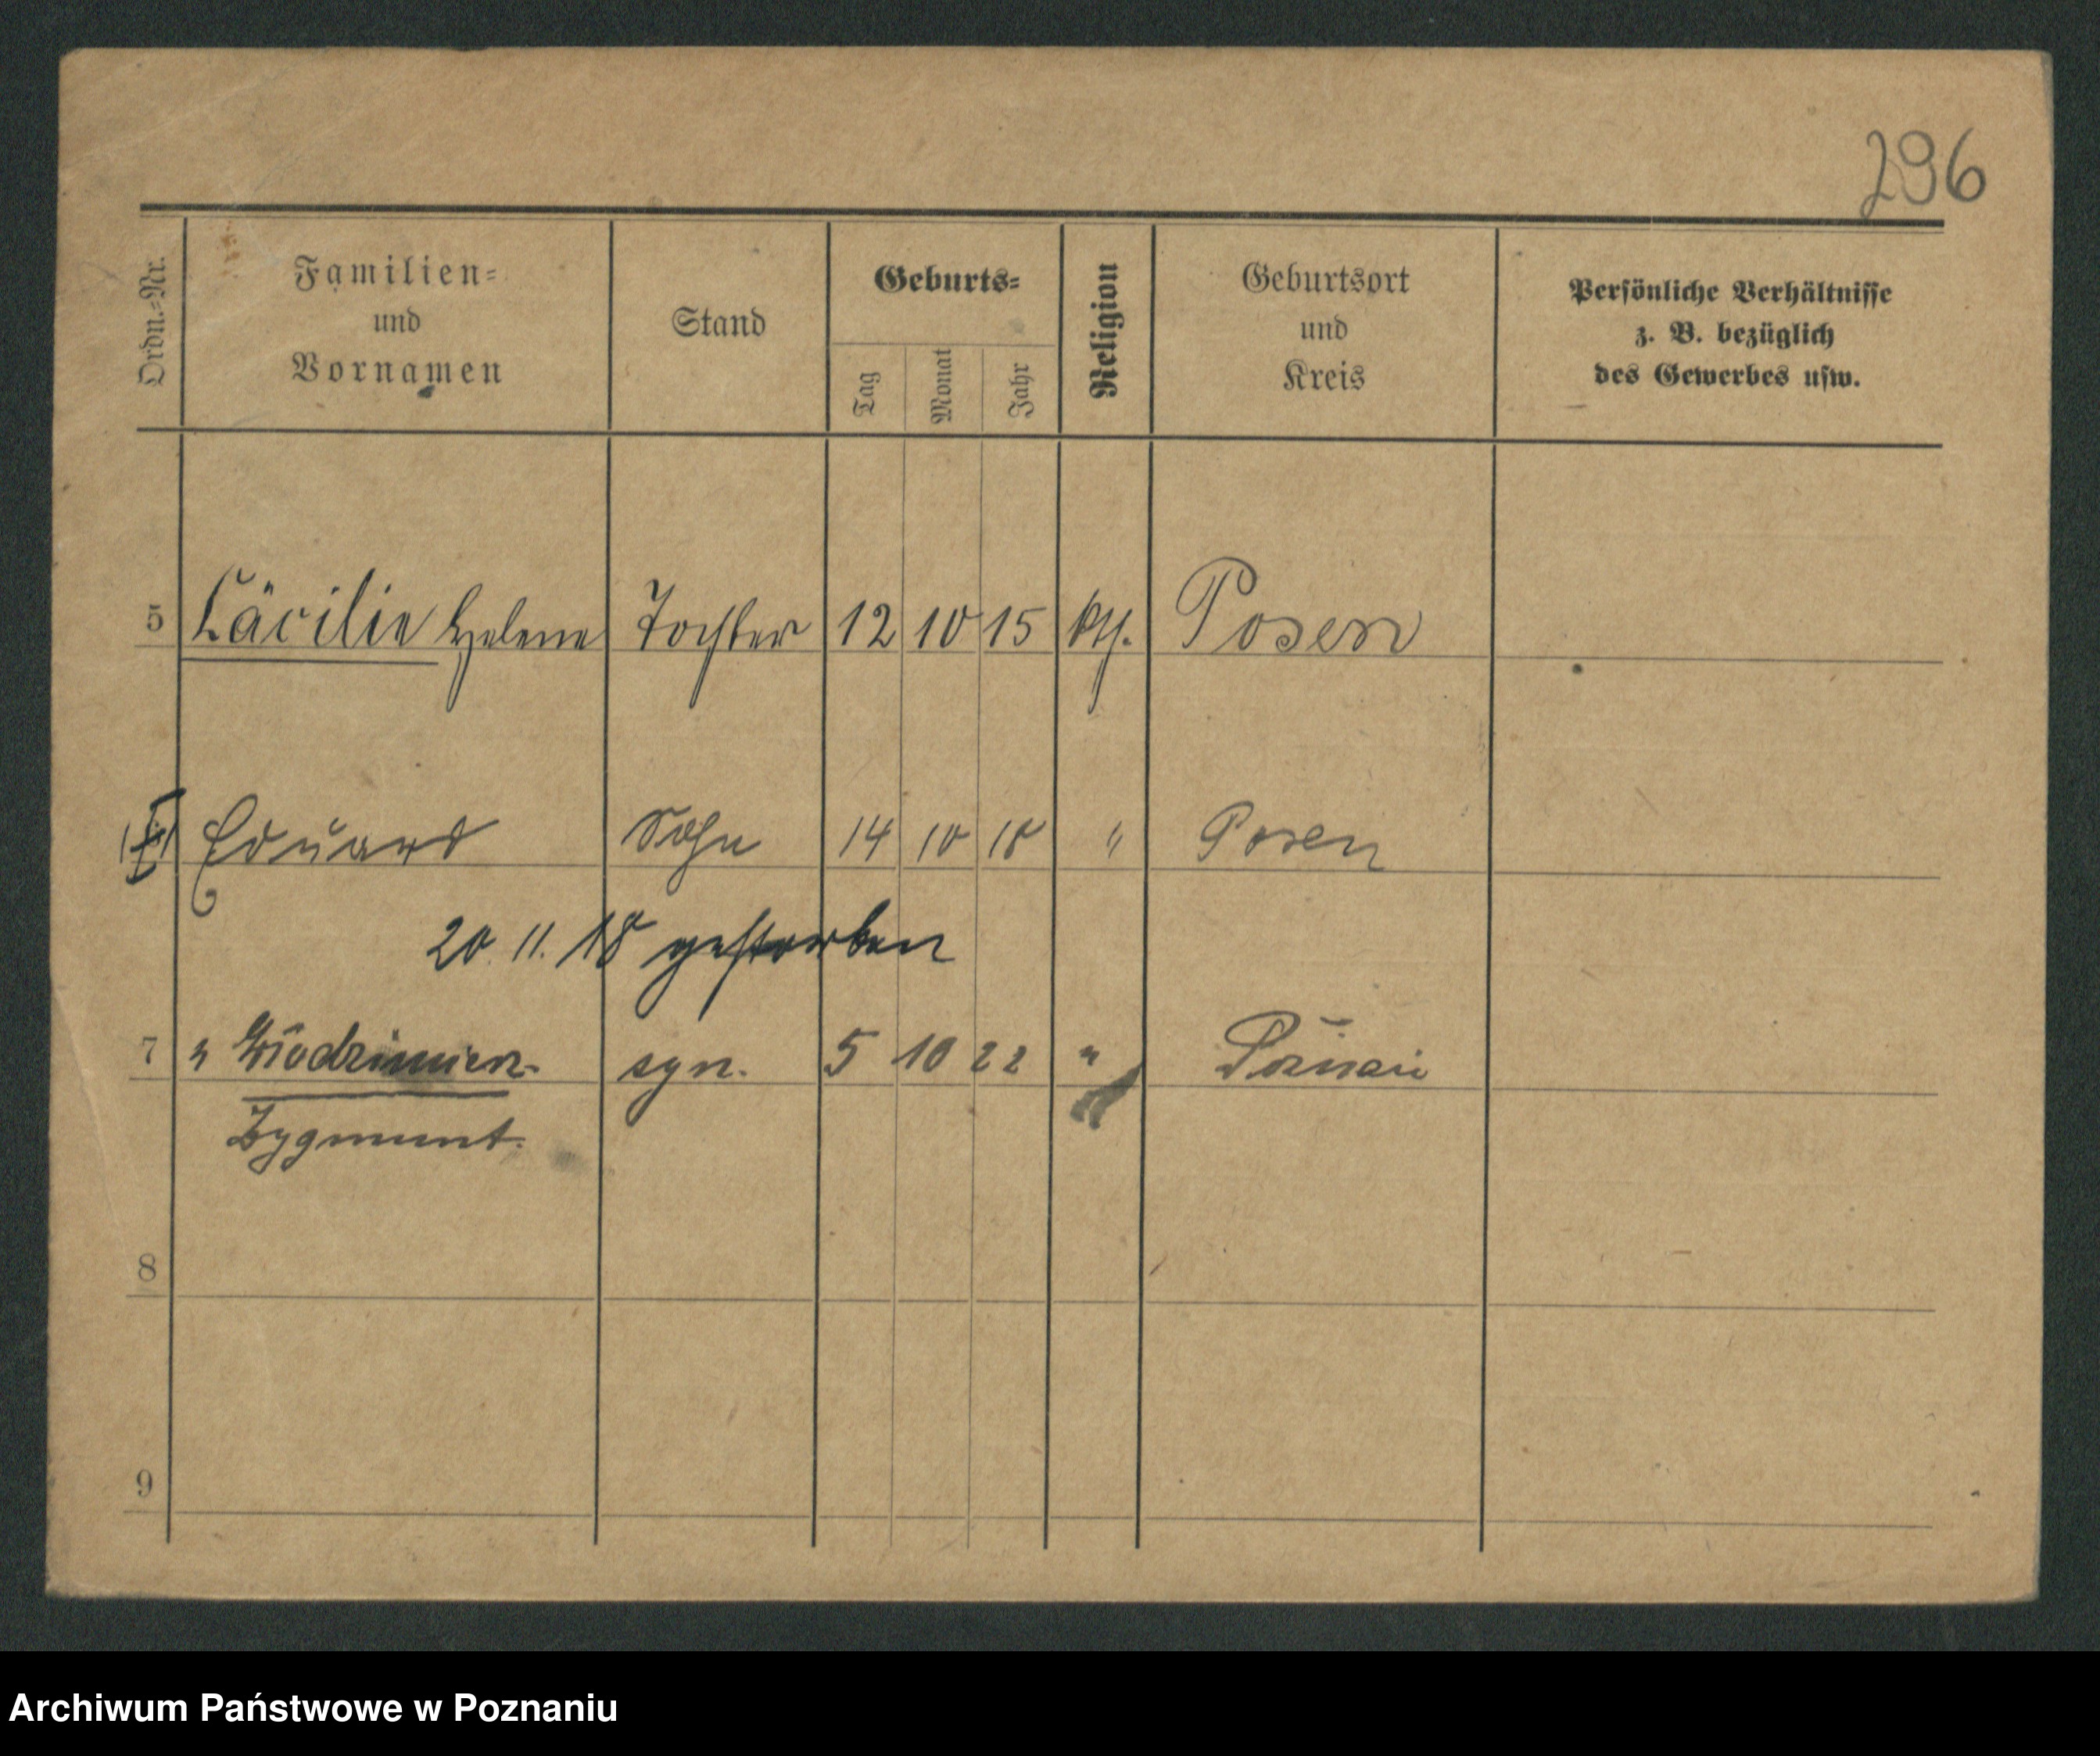 296
Ordn.-Nr.
Familien-
und
Vornamen
Stand
Geburts-
Tag
Monat
Jahr
Religion
Geburtsort
und
Kreis
Persönliche Verhältnisse
z. B. bezüglich
des Gewerbes usw.
5 Cäcilie Helene Tochter 12 10 15 kth. Posen
Eduard Sohn 14 10 18 " Posen
20. 11. 18 gestorben
7 " Włodzimierz syn. 5 10 22 " Poznań
Zygmunt.
8
9
Archiwum Państwowe w Poznaniu